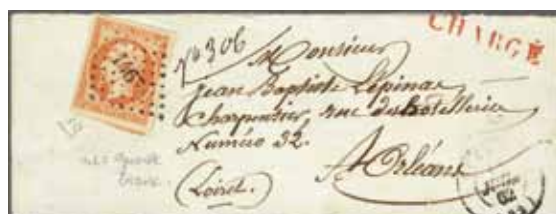 CHARGÉ
n° 306
Monsieur
Jean Baptiste Lépinas
Charpentier, rue des hotelleries
Numéro 32.
à Orléans
(Loiret.)
62